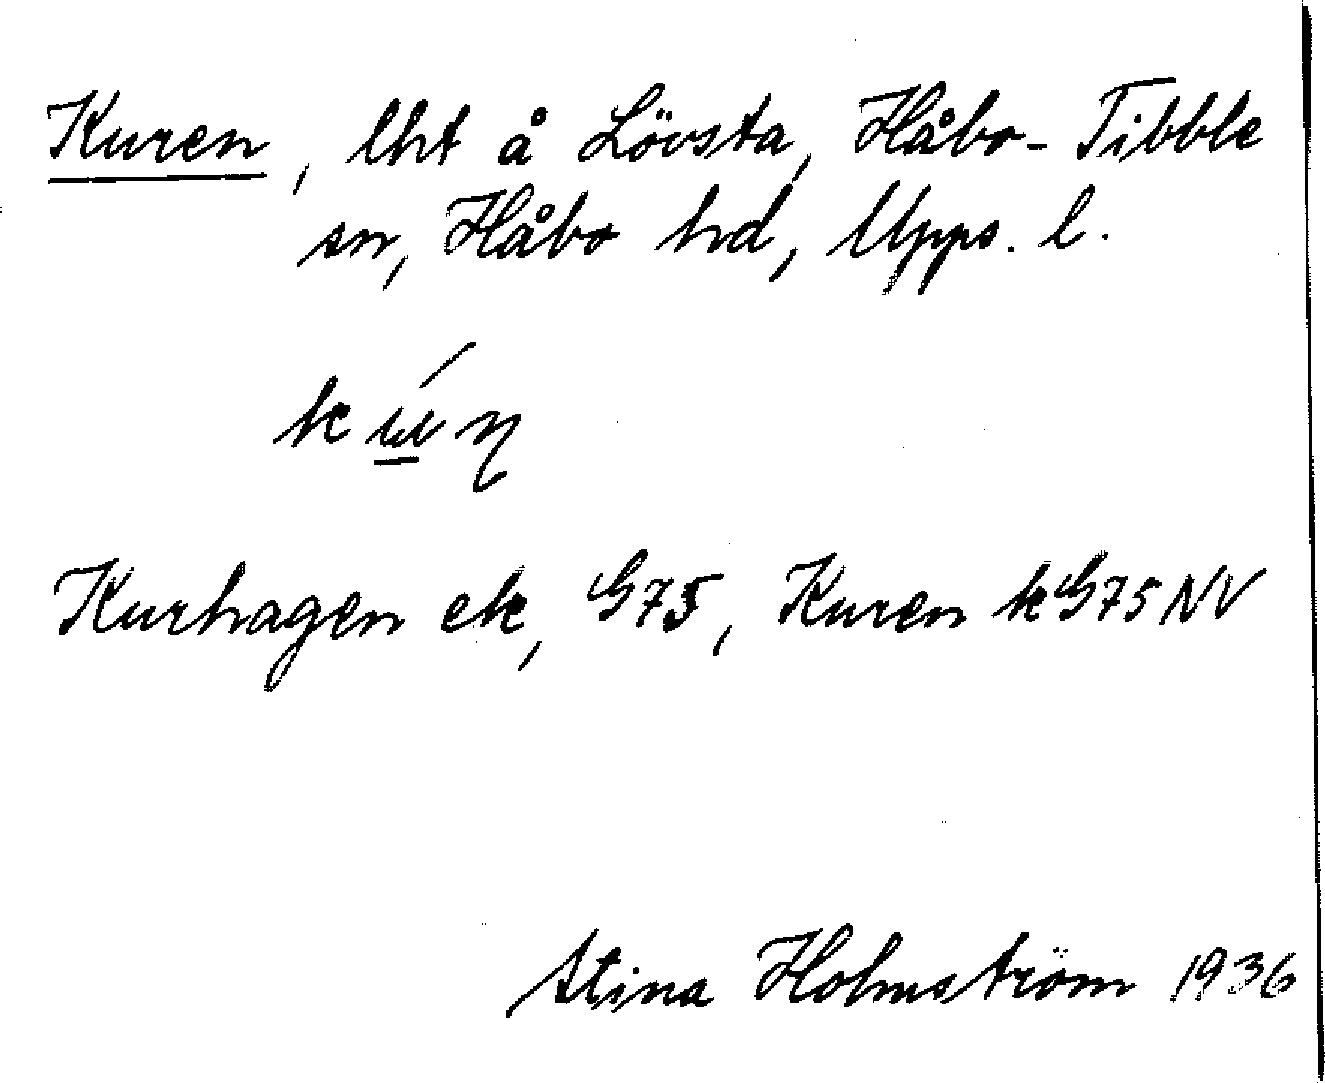 Kuren, lht å Lövsta, Håbo-Tibble
sn, Håbo hd, Upps. l.
Kurhagen ek, G75, Kuren k G75 NV
Stina Holmström 1936